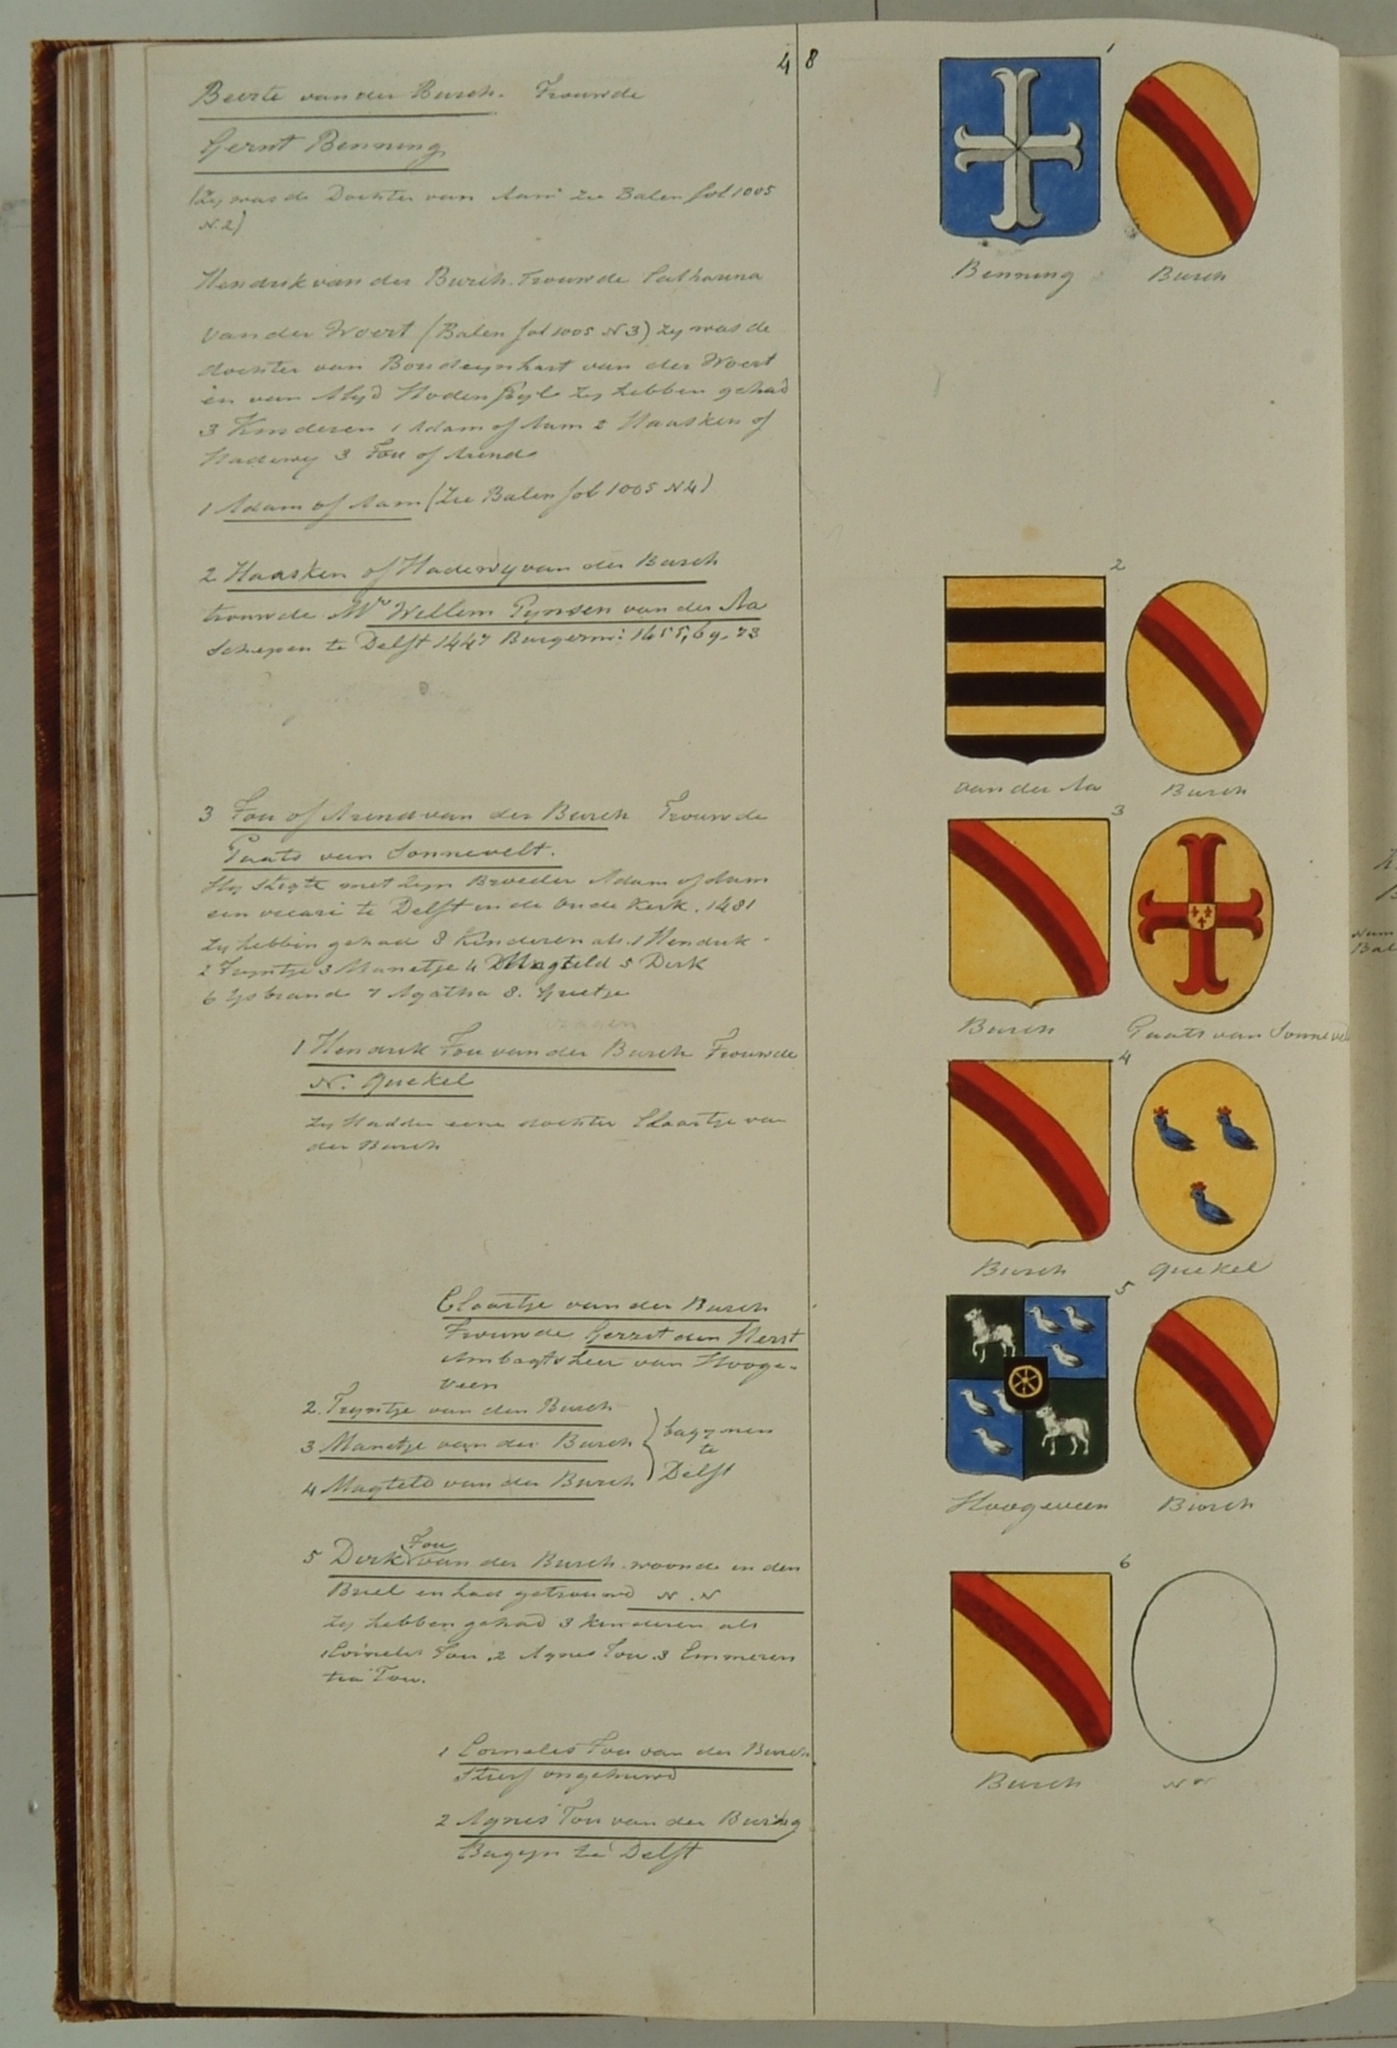 48
Beerte van der Burch. Trouwde
Gerrit Benning
(Zy was de Dochter van Aam zie Balen fol 1005
N. 2)
Hendrik van der Burch. Trouwde Catharina
van der Woert (Balen fol 1005 N 3) zy was de
dochter van Boudeynhart van der Woert
en van Alyd Hodenpyl zy hebben gehad
3 Kinderen 1 Adam of Aam 2 Haasken of
Hadewy 3 Fou of Arend
1 Adam of Aam (Zie Balen fol 1005 N 4)
2 Haasken of Hadewy van der Burch
trouwde Mr Willem Pynsen van der Aa
Schepen te Delft 1447 Burgerm: 1455, 69, 73
3 Fou of Arend van der Burch Trouwde
Paats van Sonnevelt.
Hy stigte met zyn Broeder Adam of Aam
een vicari te Delft in de Oude Kerk. 1481
zy hebben gehad 8 Kinderen als 1 Hendrik
2 Tryntje 3 Manetje 4 Magteld 5 Dirk
6 Ysbrand 7 Agatha 8. Grietje
1 Hendrik Fou van der Burch Trouwde
N. Quekel
Zy Hadden eene dochter Claartje van
der Burch
Claartje van der Burch
Trouwde Gerrit den Herst
Ambagts Heer van Hooge-
veen
2. Tryntje van der Burch
3 Manetje van der Burch
4 Magteld van der Burch
bagynen
te
Delft
5 Dirk Fou van der Burch woonde in den
Briel en had getrouwd N. N
Zy hebben gehad 3 kinderen als
1 Cornelis Fou. 2 Agnes Fou. 3 Emmeren
tia Fou.
1 Cornelis Fou van der Burch
Sterf ongehuwd
2 Agnes Fou van der Burch
Bagyn te Delft
1
Benning Burch
2
van der Aa Burch
3
Burch Paats van Sonnevel
4
Burch Quekel
5
Hoogeveen Burch
6
Burch N N